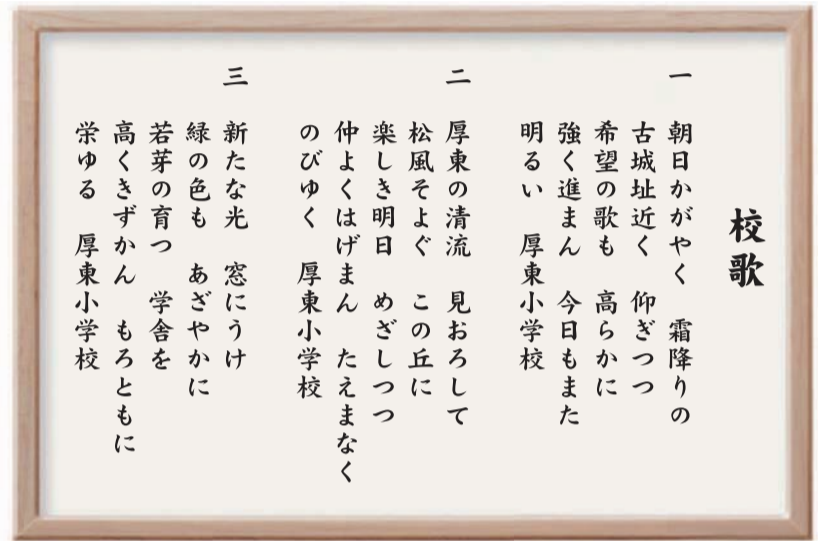 校歌
一
朝日かがやく　霜降りの
古城址近く　仰ぎつつ
希望の歌も　高らかに
強く進まん　今日もまた
明るい　厚東小学校
二
厚東の清流　見おろして
松風そよぐ　この丘に
楽しき明日　めざしつつ
仲よくはげまん　たえまなく
のびゆく　厚東小学校
三
新たな光　窓にうけ
緑の色も　あざやかに
若芽の育つ　学舎を
高くきずかん　もろともに
栄ゆる　厚東小学校